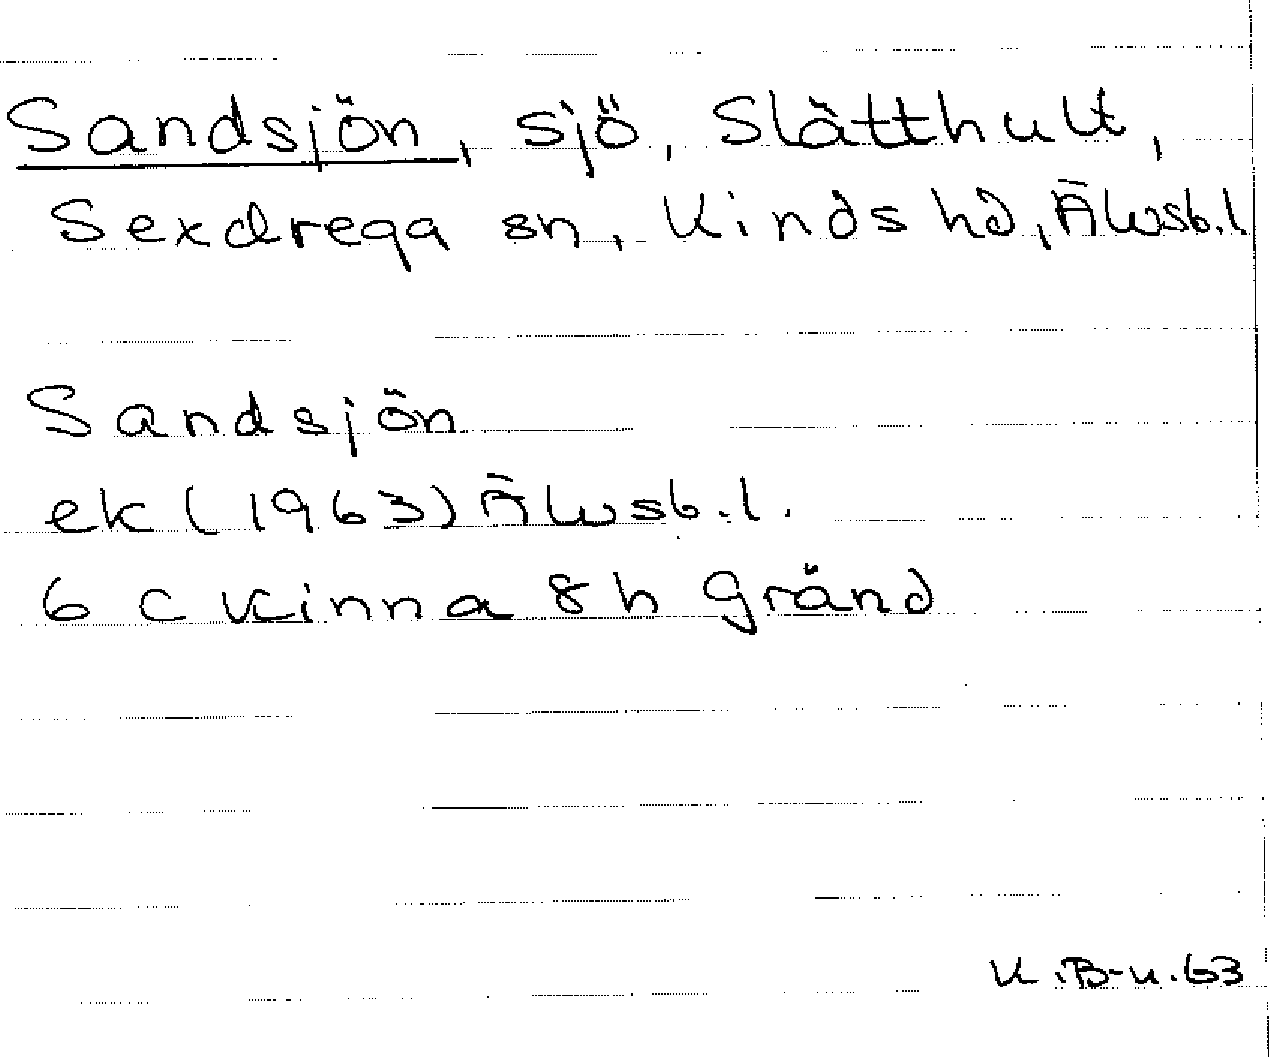 Sandsjön, sjö, Slätthult,
Sexdrega sn, Kinds hd, Älvsb.l
Sandsjön
ek (1963) Älvsb.l.
6 C Kinna 8h Gränd
K.B-n.63